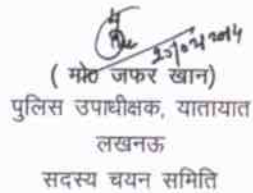 ( मो० जफर खान)
पुलिस उपाधीक्षक, यातायात
लखनऊ
सदस्य चयन समिति